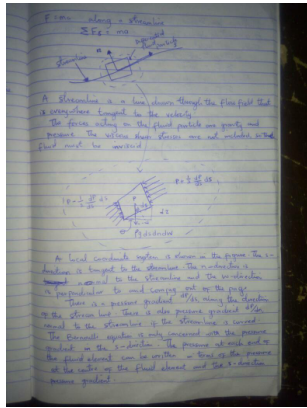 F = ma along a streamline
ΣFs = mas
A streamline is a line drawn through the flow field that
is everywhere tangent to the velocity.
The forces acting on the fluid particle are gravity and
pressure. The viscous shear stresses are not included so the
fluid must be inviscid.
A local coordinate system is shown in the figure. The s-
direction is tangent to the streamline. The n-direction is
normal to the streamline and the
is perpendicular to and coming out of the page.
There is a pressure gradient along the direction
of the streamline. There is also pressure gradient
normal to the streamline if the streamline is curved.
The Bernoulli equation is only concerned with the pressure
gradient in the s-direction. The pressure at each end of
the fluid element can be written in terms of the pressure
at the center of the fluid element and the s-direction
pressure gradient.